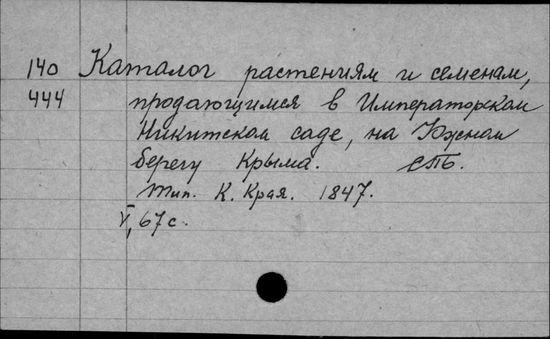 140 Каталог растениям и семенам,
444 продающимся в Императорском
Никитском саде, на Южном
берегу Крыма. СПб.
Тип. К. Края. 1847.
V, 67 с.